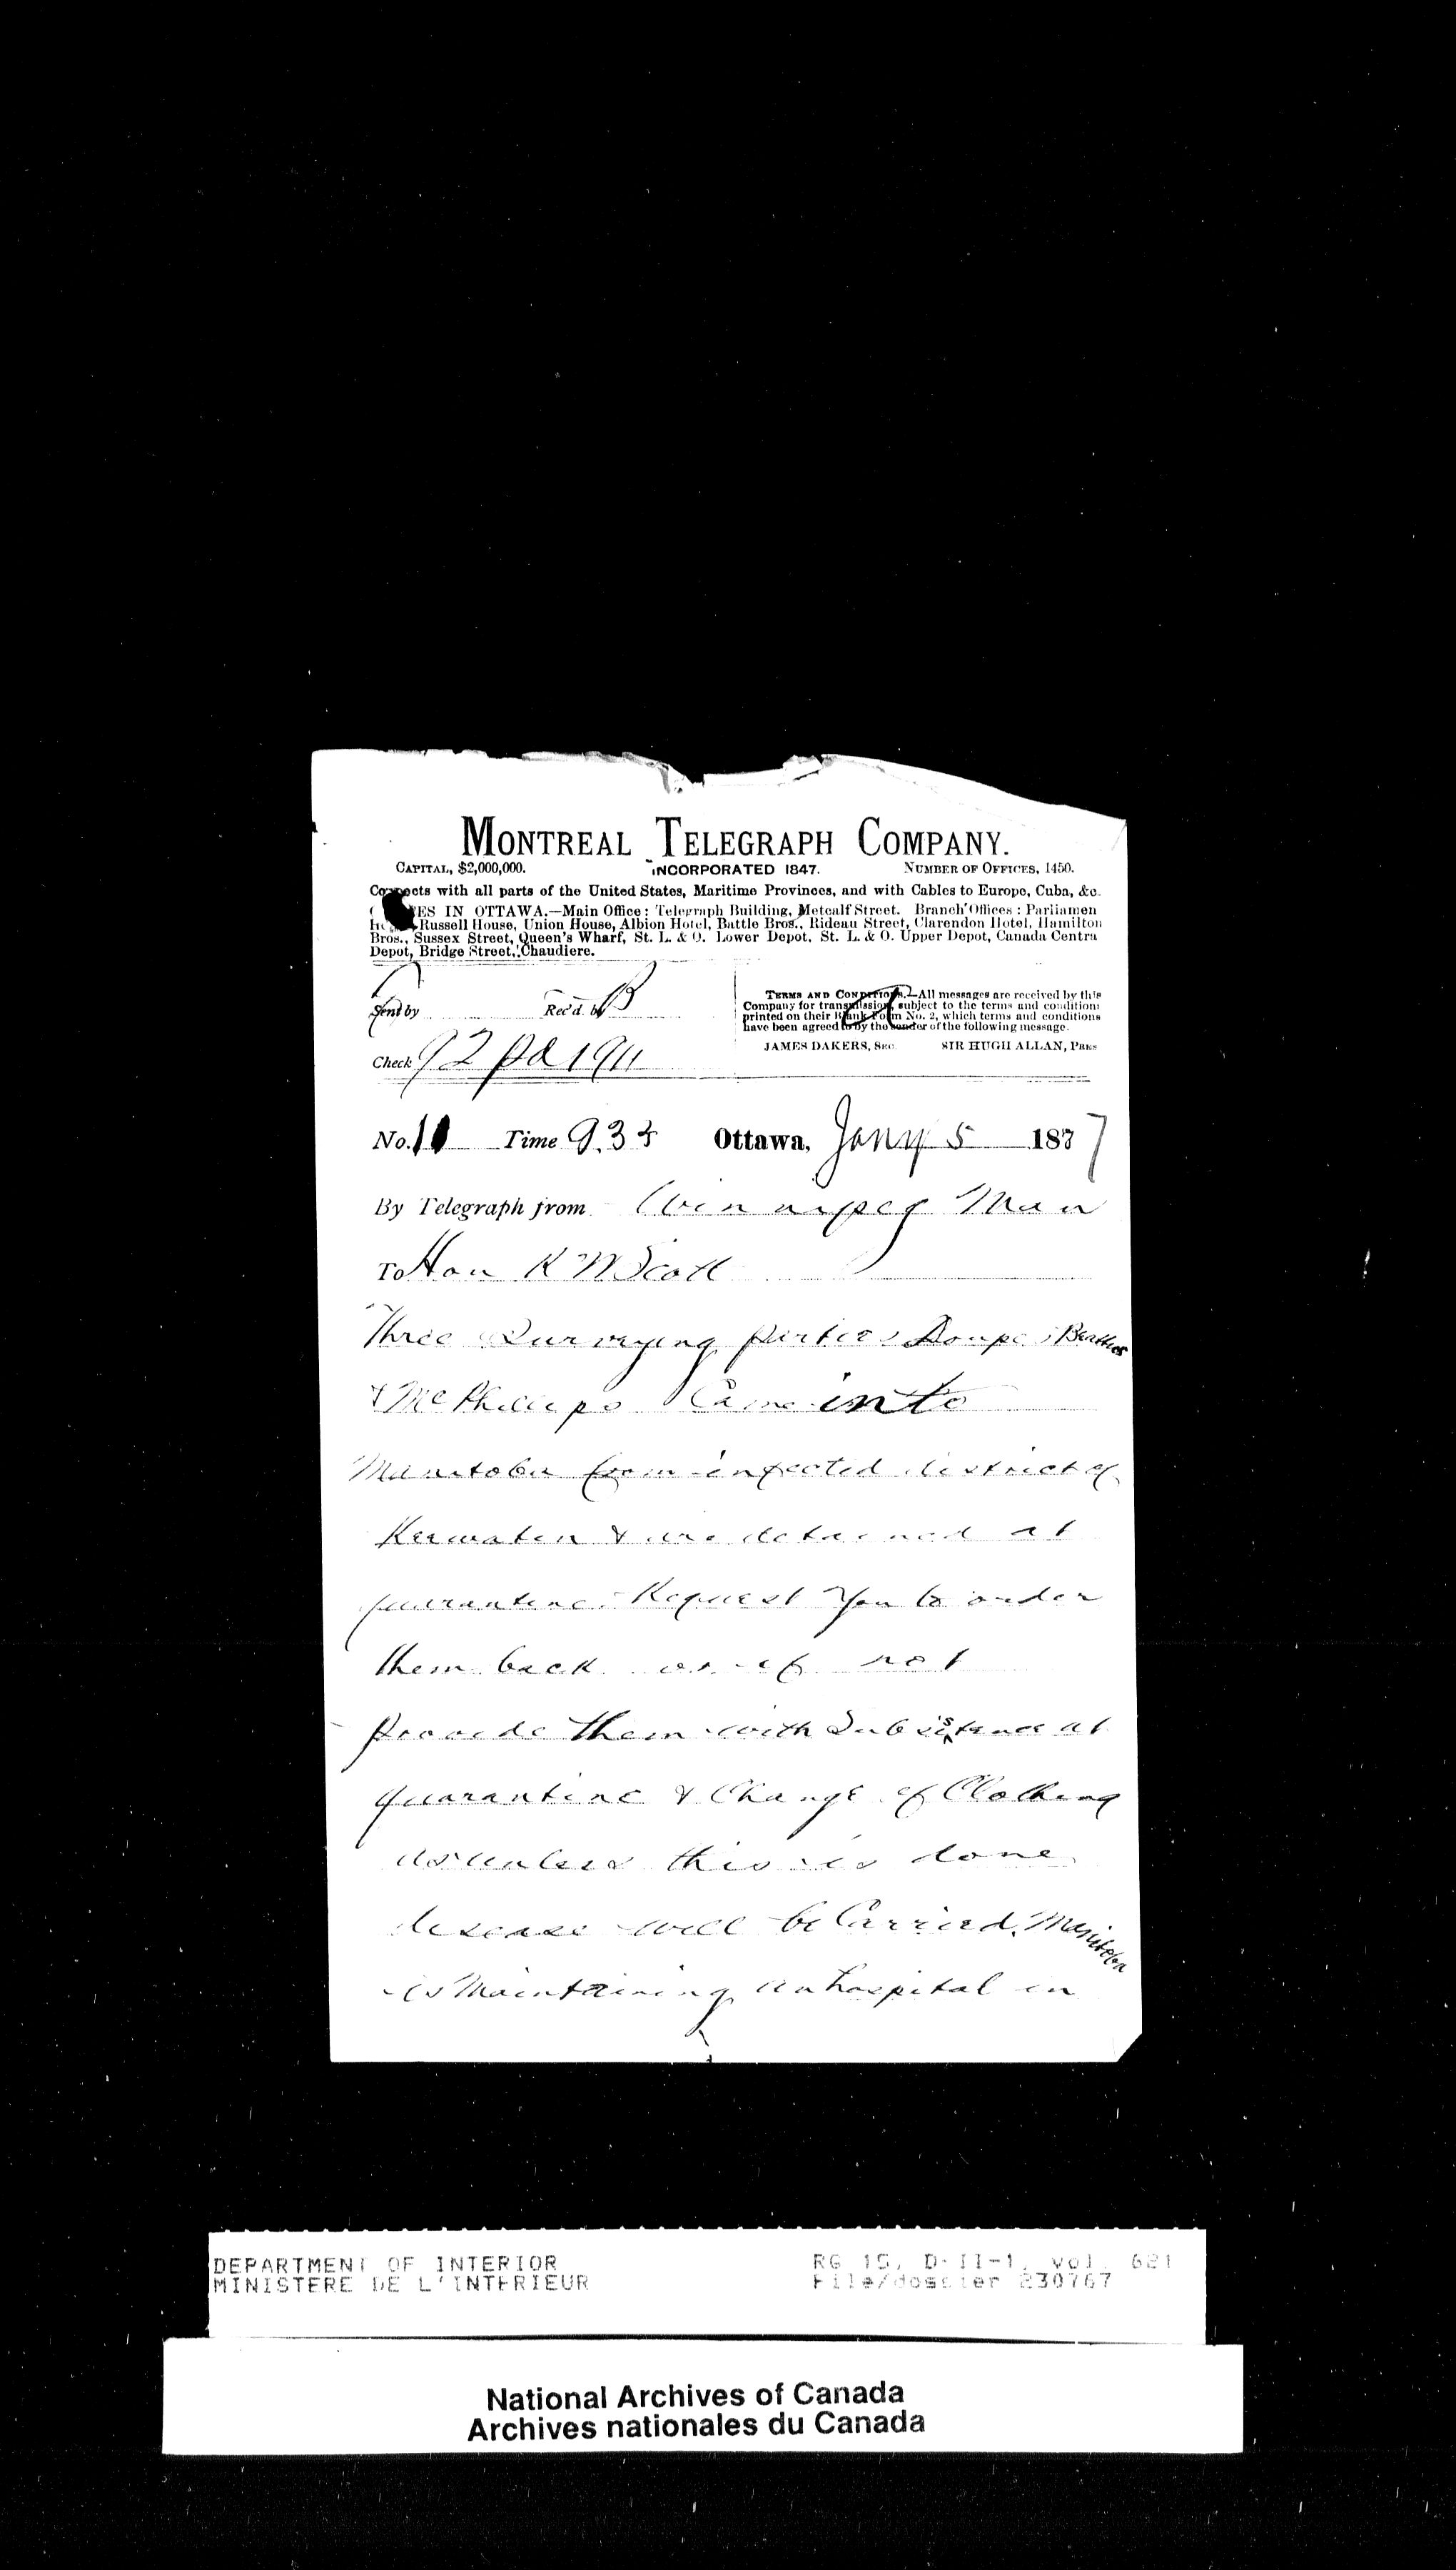 MONTREAL TELEGRAPH COMPANY.
CAPITAL, $2,000,000. INCORPORATED 1847. NUMBER OF OFFICES, 1450.
Connects with all parts of the United States, Maritime Provinces, and with Cables to Europe, Cuba, &c.
ES IN OTTAWA.—Main Office: Telegraph Building, Metcalf Street. Branch Offices: Parliamen
Russell House, Union House, Albion Hotel, Battle Bros., Rideau Street, Clarendon Hotel, Hamilton
Bros., Sussex Street, Queen's Wharf, St. L. & O. Lower Depot, St. L. & O. Upper Depot, Canada Centra
Depot, Bridge Street, Chaudiere.
Sent by Rec'd. by B
TERMS AND CONDITIONS.—All messages are received by this
Company for transmission, subject to the terms and condition
printed on their Blank Form No. 2, which terms and conditions
have been agreed to by the sender of the following message.
JAMES DAKERS, SEC. SIR HUGH ALLAN, PRES
Check 92 pd
No. 11 Time 9.35 Ottawa, Jany 5 1877
By Telegraph from Winnipeg Man
To Hon R W Scott
Three Surveying parties Doupe Beatties
& McPhillips Came into
Manitoba from infected district of
Keewaten & are detained at
quarantine Request You to order
them back or if not
provide them with Subsistance at
quarantine & Change of Clothing
as unless this is done
disease will be Carried. Manitoba
is Maintaining an hospital in
DEPARTMENT OF INTERIOR RG 15, D-II-1, vol. 621
MINISTERE DE L'INTERIEUR File/dossier 230767
National Archives of Canada
Archives nationales du Canada